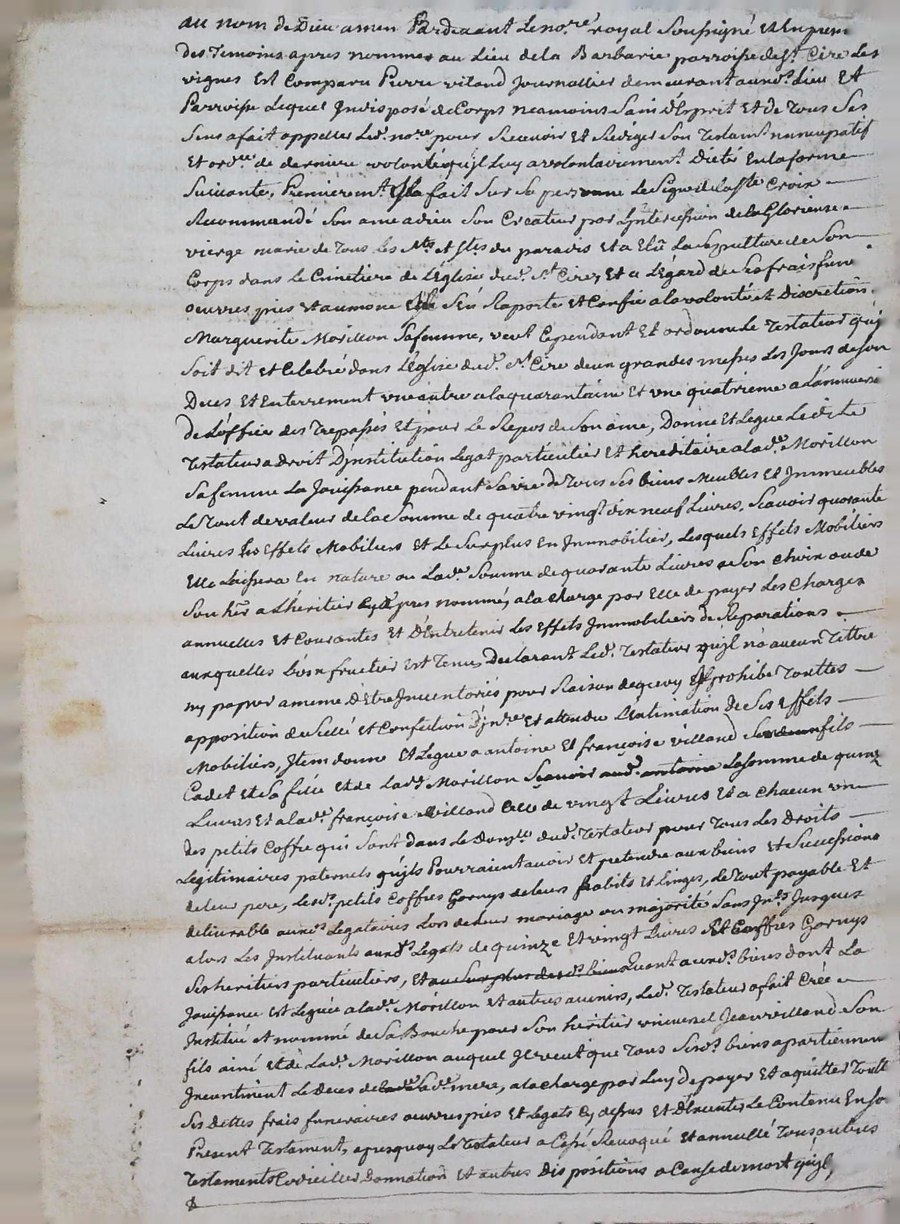 au nom de Dieu amen Pardevant Le nore royal Soussigné et En presen
des Temoins apres nommes au Lieu de la Barbarie parroisse de St Cire Les
vignes Est Comparu Pierre vilaud Journallier demeurant aud. Lieu Et
Parroisse Lequel Indisposé de Corps neamoins Sain d'Esprit Et de Tous Ses
Sens a fait appeller Led. nore pour Recevoir Et Rediger Son Testamt nuncupatif
Et ordre de derniere volonté qu'jl Luy a volontairement Dicté En la forme
Suivante, Premieremt Jl a fait Sur Sa personne Le Signe de La Ste Croix
Recommandé Son ame a dieu Son Createur par L'jntercession de la Glorieuse
vierge marie de Tous Les Sts et Stes du paradis et a Elû La Sepulture de Son
Corps dans le Cimetiere de L'Eglise dud. St Cire, et a L'égard de Ses frais fune
oeuvres pies et aumone Il S'en Raporte et Confie a la volonté et Discretion
Marguerite Morillon Sa femme, veut Cependant Et ordonne Le Testateur qu'jl
Soit dit et Celebré dans L'Eglise dud. St Cire deux grandes messes Les Jours de Son
Deces et Enterrement une autre a la quarantaine Et une quatrieme a L'anniversi
De L'office des Trepassés Et pour Le Repos de Son ame, Donne Et Legue Ledit
Testateur a Droit D'jnstitution Legat particulier Et hereditaire a lad. Morillon
Sa femme La Jouissance pendant Sa vie de Tous Ses biens Meubles Et Immeubles
Le Tout de valeur de la Somme de quatre vingt dix neuf Livres, Scavoir quarante
Livres En Effets Mobiliers Et Le Surplus En Immobilier, Lesquels Effets Mobiliers
Elle Laissera En nature ou Lad. Somme de quarante Livres a Son Choix ou de
Son hër a L'heritier Cy apres nommé, a la charge par Elle de payer Les Charges
annuelles Et Courantes Et D'Entretenir Les Effets Immobiliers de Reparations
auxquelles L'usufructier Est Tenu Declarant Led. Testateur qu'jl n'a aucun Tittre
ny papier a meme D'Etre Jnventoriés pour Raison de quoy Jl prohibe Touttes
apposition de Scellé et Confection D'jnre Et attendu L'Estimation de Ses Effets
Mobiliers, Jtem donne Et Legue a antoine Et françoise villaud Son fils
Cadet et Sa fille Et de Lad. Morillon Scavoir aud. antoine La Somme de quinz
Livres Et a lad. françoise villaud Celle de vingt Livres Et a Chacun un
des petits Coffre qui Sont dans Le Domlle dud. Testateur pour Tous Les Droits
Legitimaires paternels qu'jls Pourraient avoir Et pretendre aux biens Et Successions
de Leur pere, Lesd. petits Coffres Garnys de leurs habits Et Linges, Le Tout payable Et
delivrable auxd. Legataires Lors de leur mariage ou majorité Sans Jnts Jusques
alors Les Instituants auxd. Legats de quinze Et vingt Livres Et Coffres Garnys
Ses heritiers particuliers, Et au Surplus desd. biens Quant auxd. biens dont La
Jouissance Est Leguée a lad. Morillon Et autres avenirs, Led. Testateur a fait Créé
Institué Et nommé de Sa Bouche pour Son heritier universel Jean villaud Son
fils ainé Et de Lad. Morillon auquel Jl veut que Tous Sesd. biens apartiennen
Jncontinent Le Deces de Sad. mere, a la charge par Luy De payer Et aquitter Toutt
Ses Dettes frais funeraires oeuvres pies Et Legats Cy dessus Et D'Executer Le Contenu En Son
Present Testament, apres quoy Le Testateur a Cassé Revoqué Et annullé Tous autres
Testaments Codicilles Donnation Et autres Dispositions a Cause de mort qu'jl